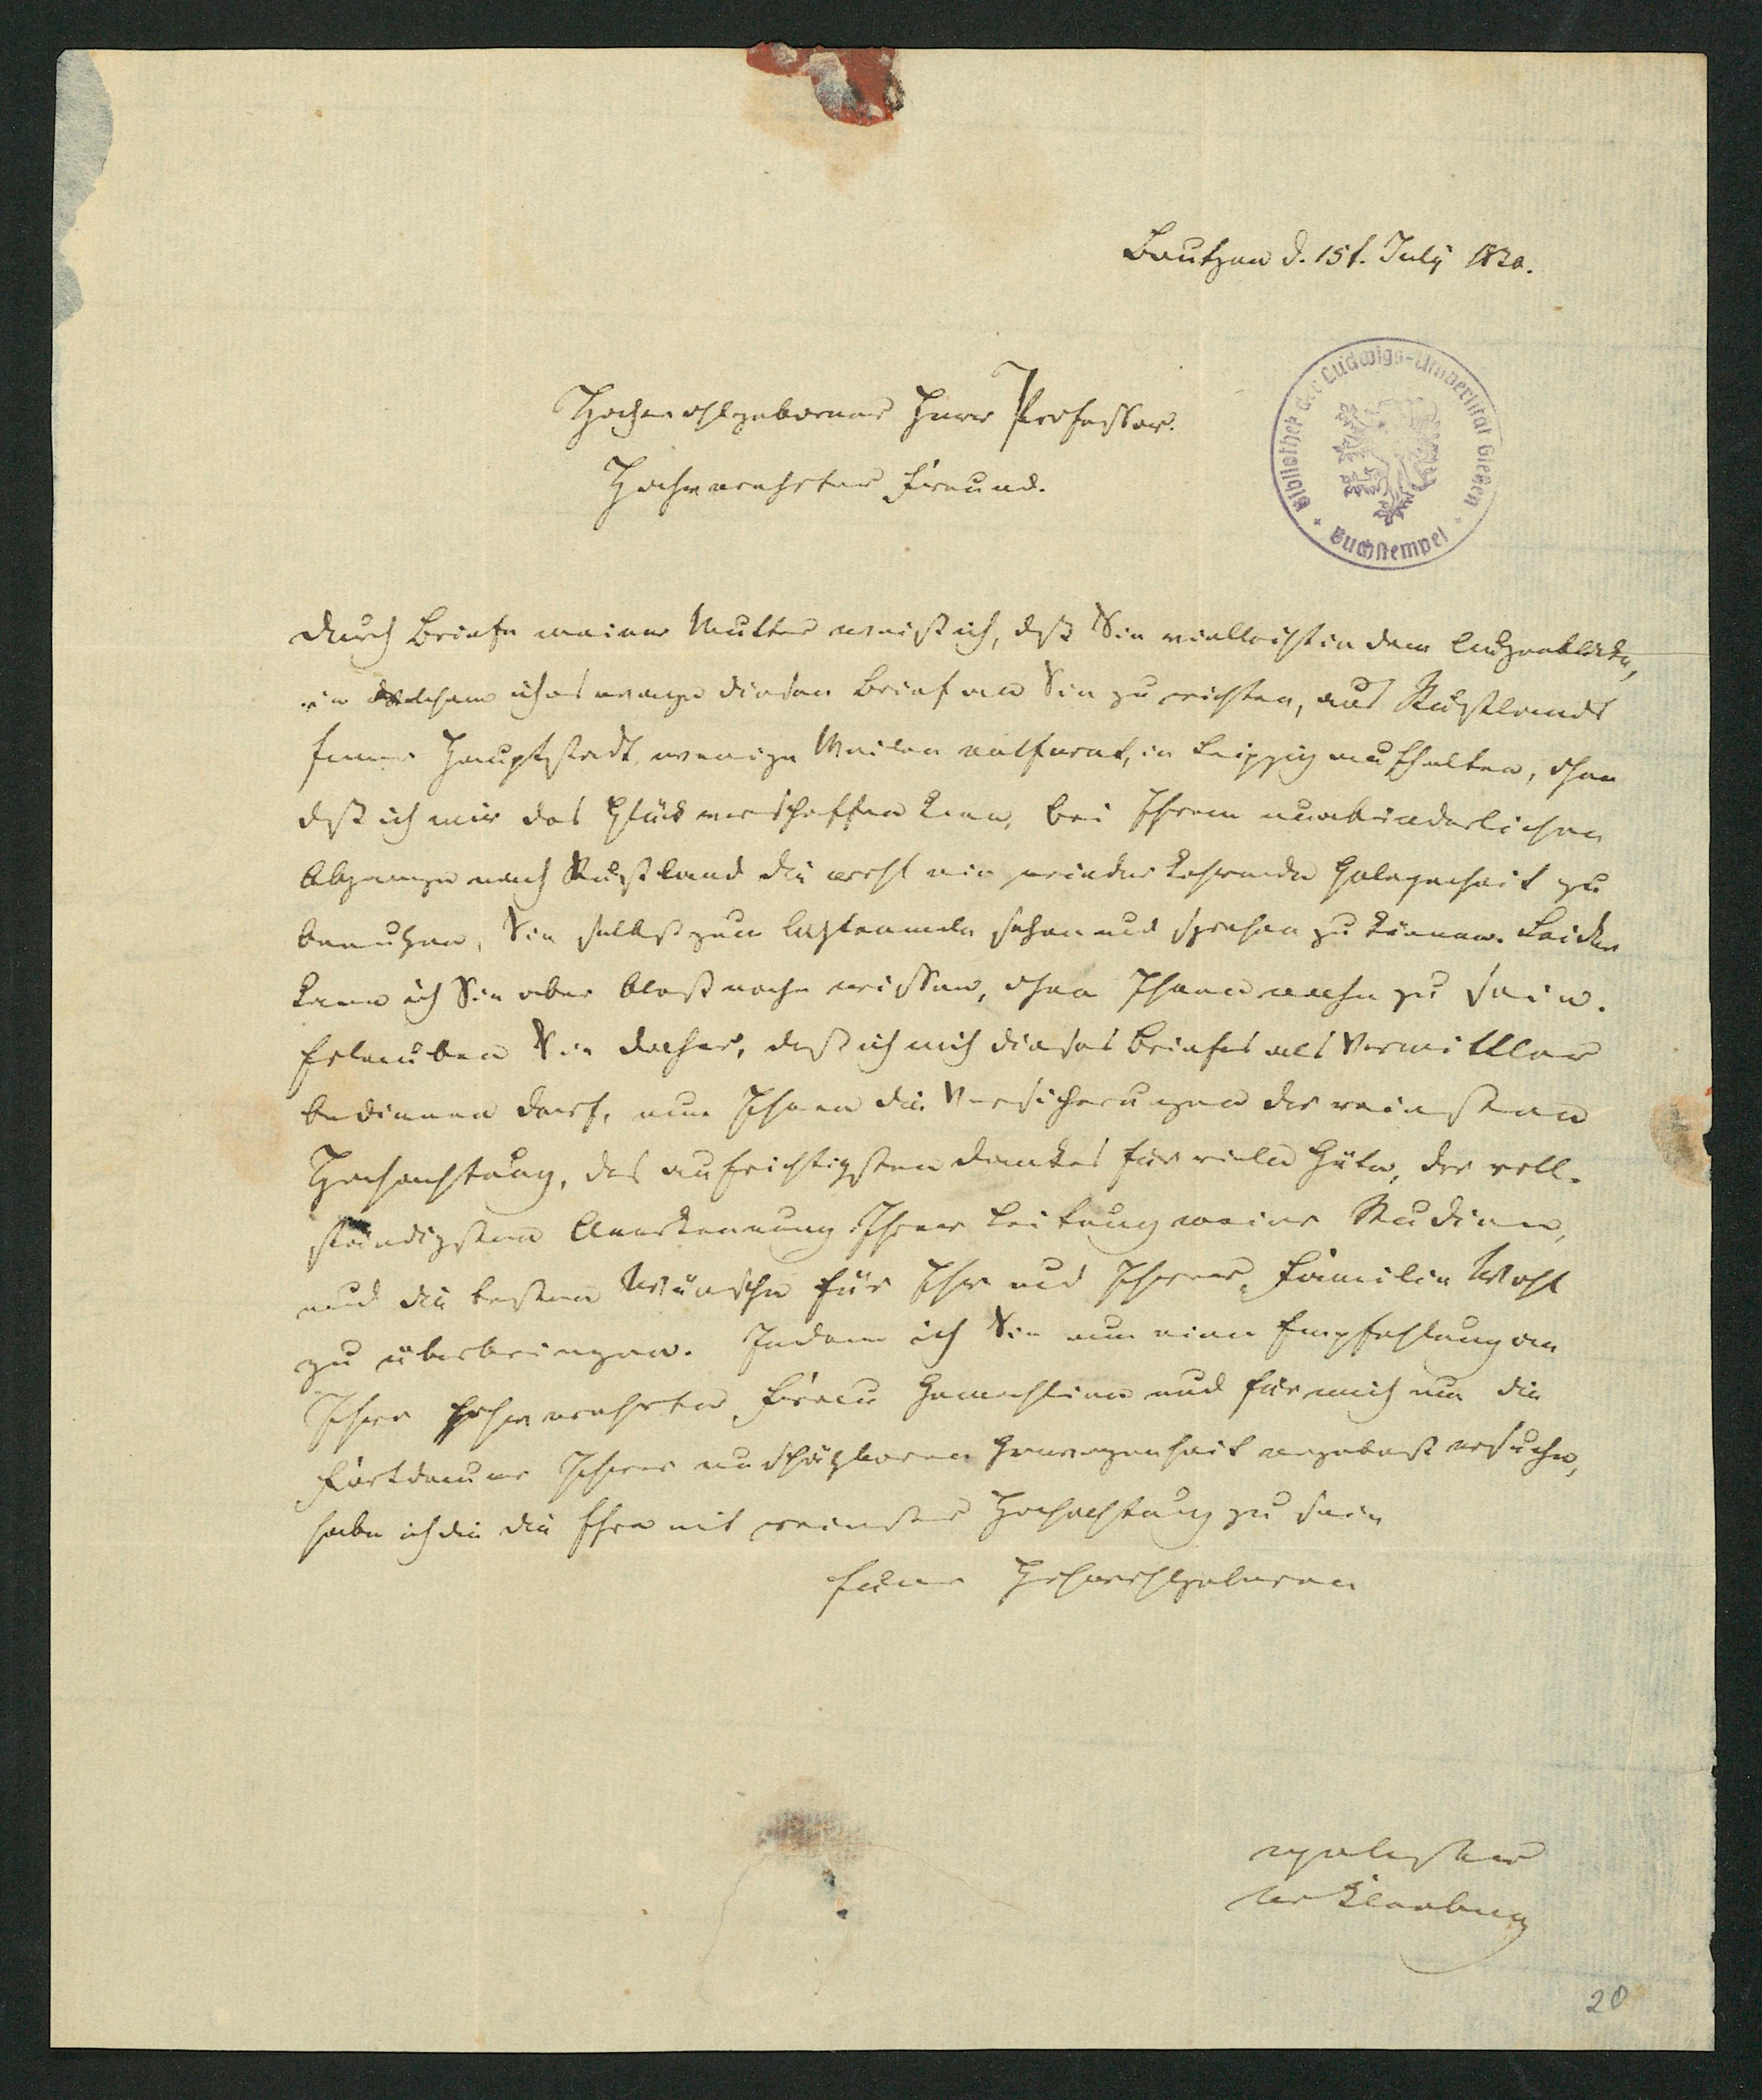 Bautzen d. 15t. July 1820.
Hochwohlgeborner Herr Professor.
Hochverehrter Freund.
Bibliothek der Ludwigs-Universität Gießen
Buchstempel
Durch Briefe meiner Mutter weiß ich, daß Sie vielleicht in dem Augenblicke,
in welchem ich es wage diesen Brief an Sie zu richten, aus Rußlands
ferner Hauptstadt wenige Meilen entfernt, in Leipzig aufhalten, ohne
daß ich mir das Glück verschaffen kann, bei Ihrem unabänderlichen
Abgange nach Rußland die wohl nie wieder kehrende Gelegenheit zu
benutzen, Sie selbst zum letztenmale sehen und sprechen zu können. Leider
kann ich Sie aber bloß nahe wissen, ohne Ihnen nahe zu sein.
Erlauben Sie daher, daß ich mich dieses Briefes als Vermittler
bedienen darf, um Ihnen die Versicherungen der reinsten
Hochachtung, des aufrichtigsten Dankes für viele Güte, der voll-
ständigsten Anerkennung Ihrer Leitung meiner Studien,
und die besten Wünsche für Ihr und Ihrer Familie Wohl
zu überbringen. Indem ich Sie um eine Empfehlung an
Ihre hochverehrte Frau Gemahlinn und für mich um die
Fortdauer Ihrer unschätzbaren Gewogenheit ergebenst ersuche,
habe ich die die Ehre mit reinster Hochachtung zu sein
Euer Hochwohlgeboren
ergebenster
20